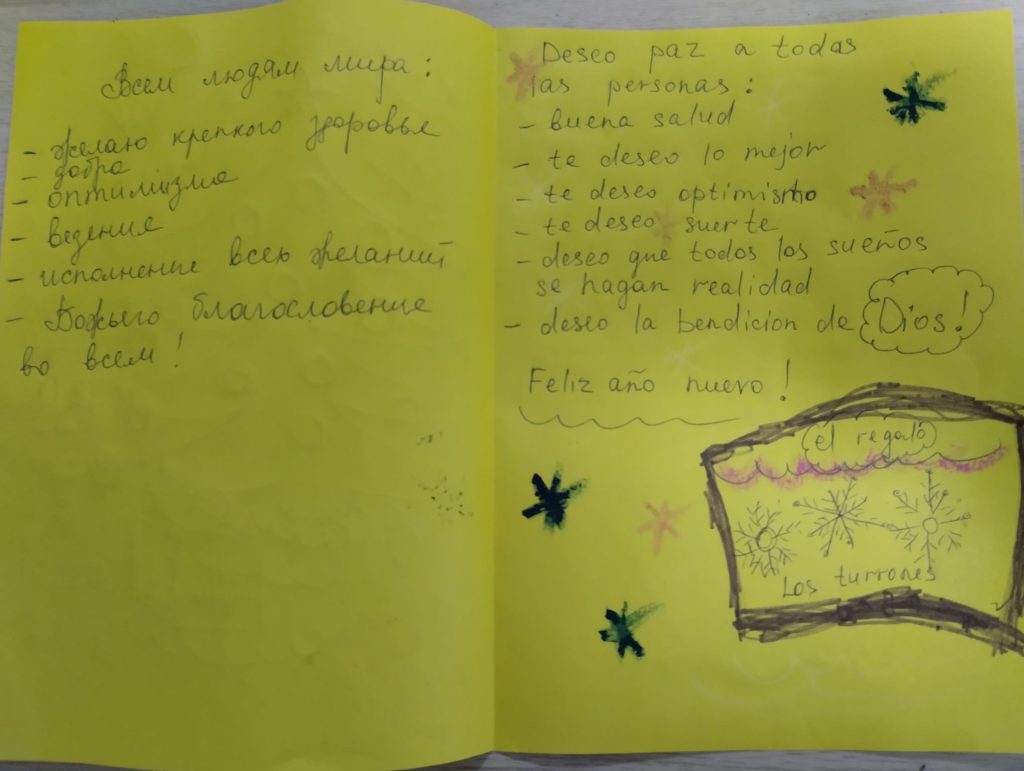 Всем людям мира:
- желаю крепкого здоровье
- добра
- оптимизма
- везение
- исполнение всею желаний
- Божьего благословение
во всем!
Deseo paz a todas
las personas:
- buena salud
- te deseo lo mejor
- te deseo optimismo
- te deseo suerte
- deseo que todos los sueños
se hagan realidad
- deseo la bendicion de Dios!
Feliz año nuevo!
el regalo
Los turrones